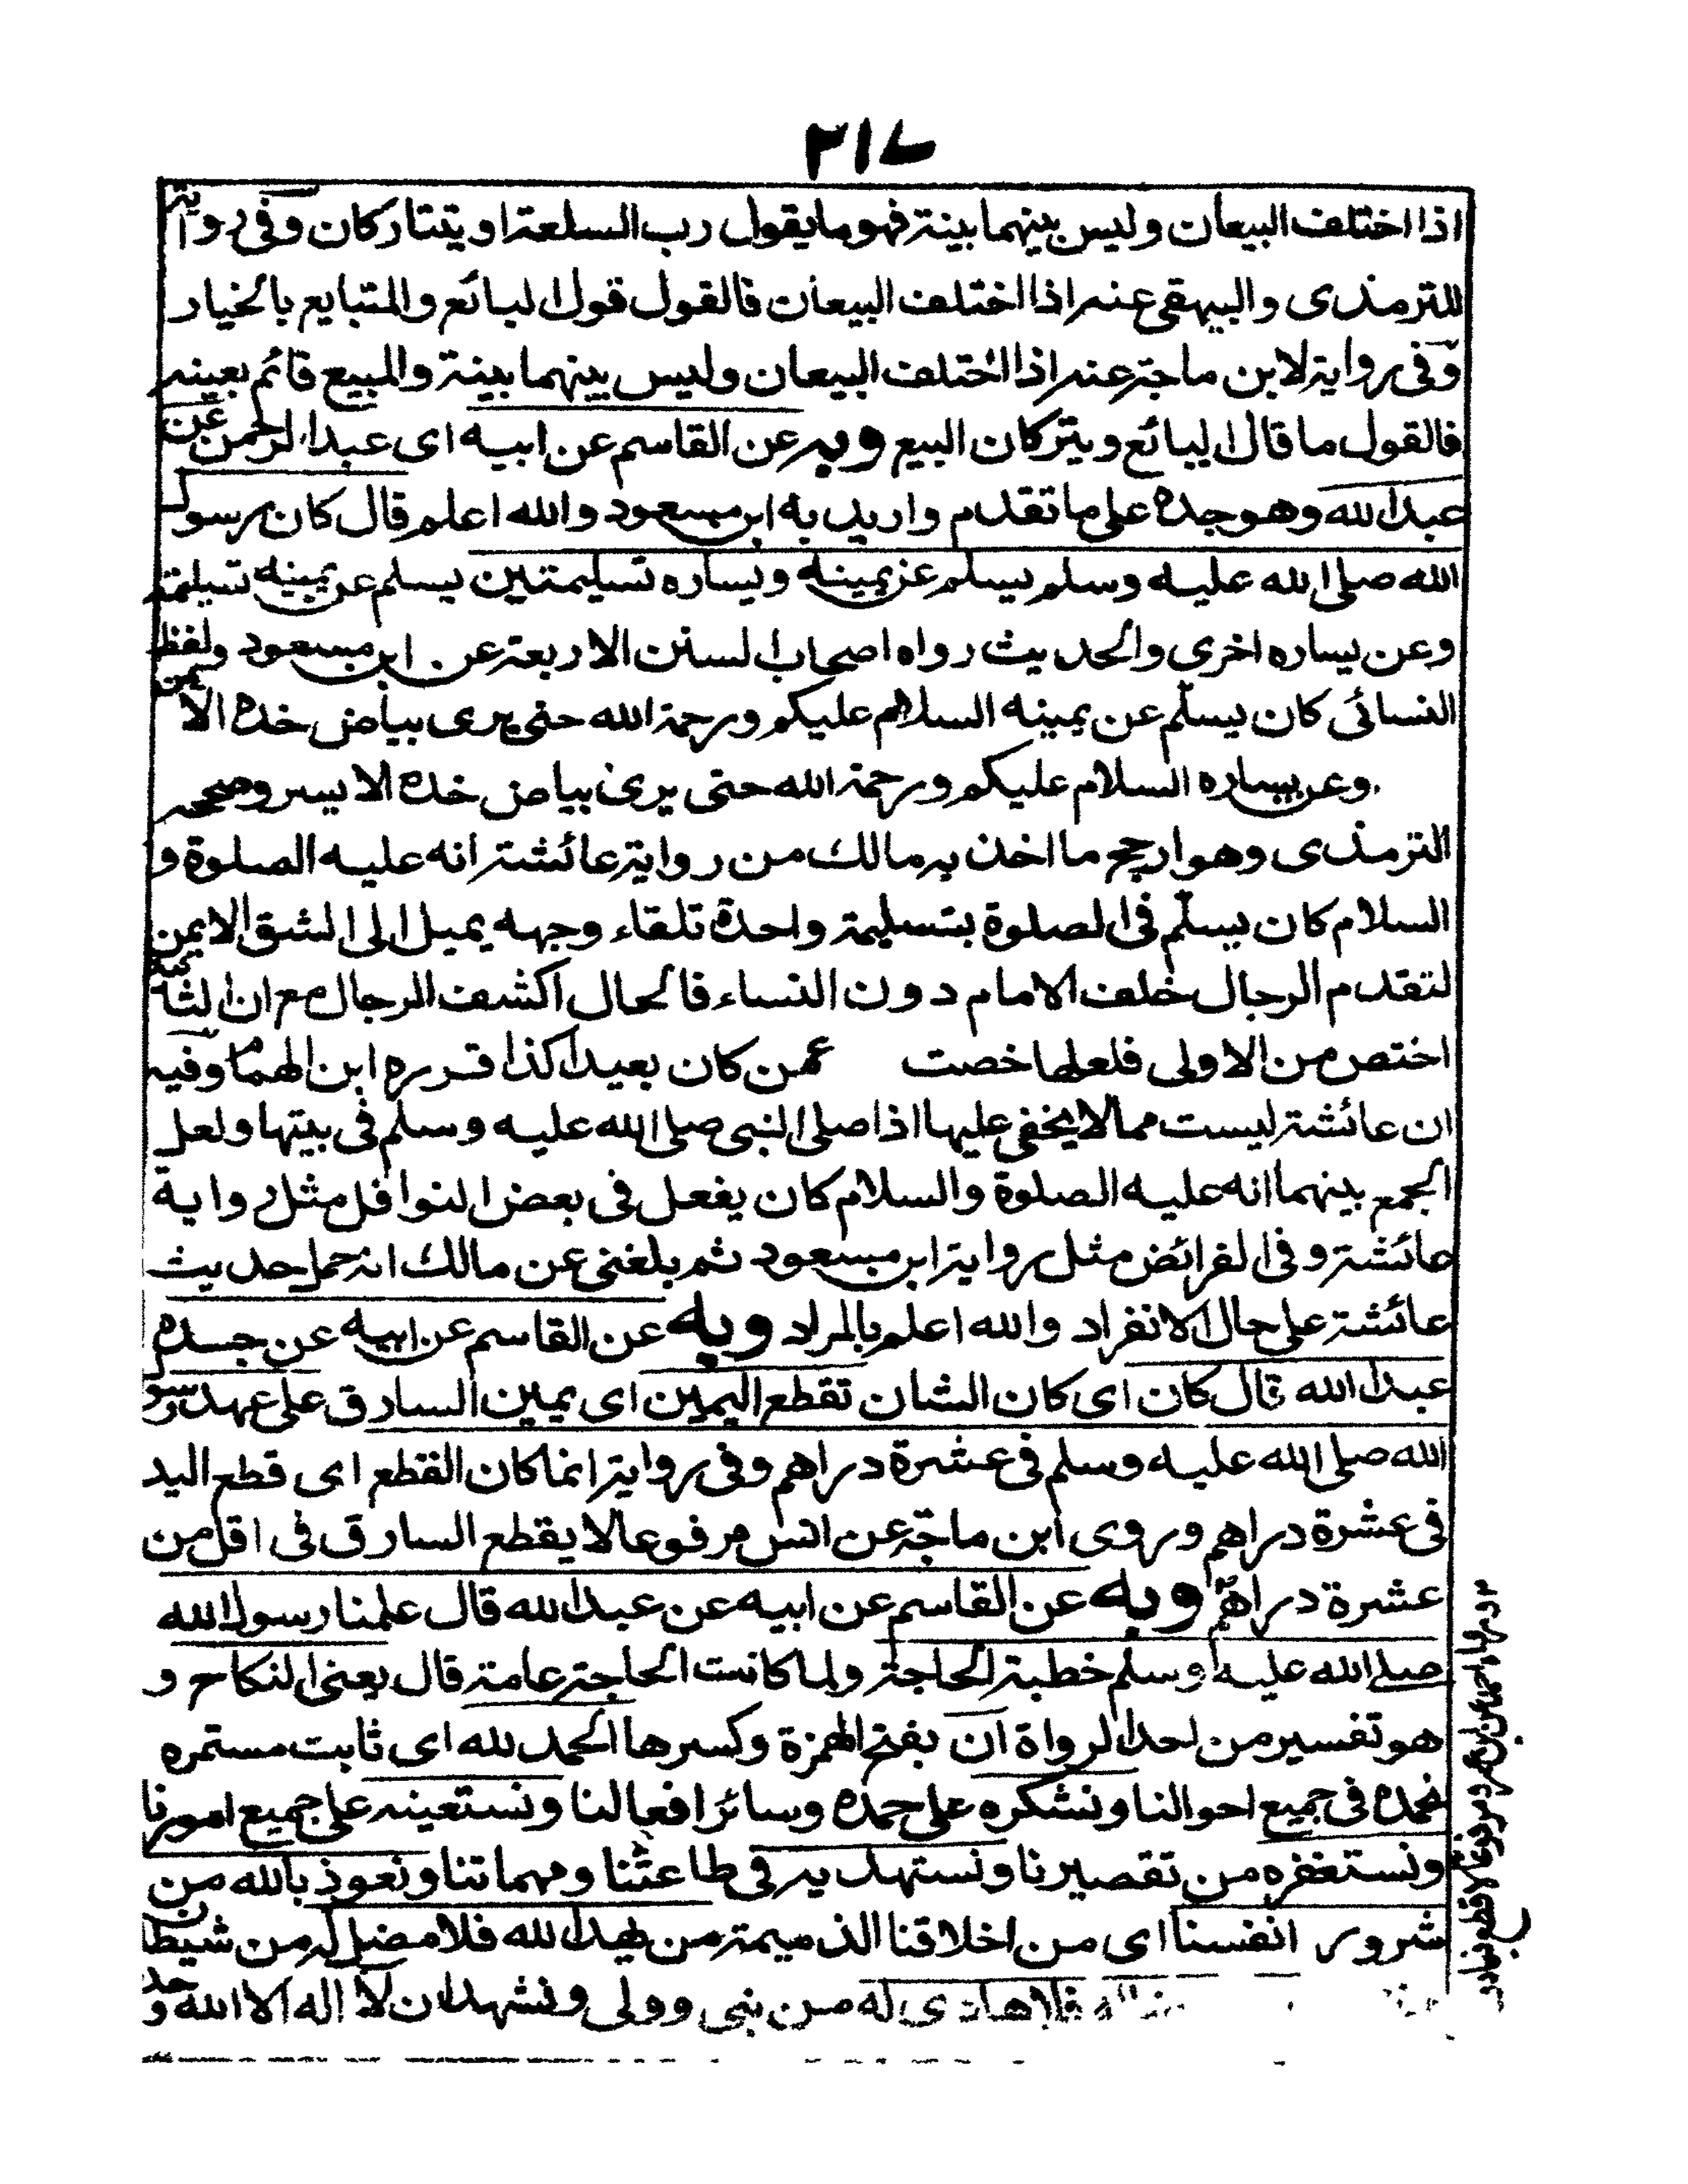 ٢١٧
اذا اختلف البيعان وليس بينهما بينة فهو ما يقول رب السلعة او يتتاركان وفى رواية
للترمذى والبيهقى عنه اذا اختلف البيعان فالقول قول البائع والمتبايع بالخيار
وفى رواية لابن ماجة عنه اذا اختلف البيعان وليس بينهما بينة والمبيع قائم بعينه
فالقول ما قال البائع ويتركان البيع وبه عن القاسم عن ابيه اى عبد الرحمن عن
عبد الله وهو جده على ما تقدم واريد به ابن مسعود والله اعلم قال كان رسول
الله صلى الله عليه وسلم يسلم عن يمينه ويساره تسليمتين يسلم عن يمينه تسليمة
وعن يساره اخرى والحديث رواه اصحاب السنن الاربعة عن ابن مسعود ولفظ
النسائى كان يسلّم عن يمينه السلام عليكم ورحمة الله حتى يرى بياض خده الايمن
وعن يساره السلام عليكم ورحمة الله حتى يرى بياض خده الايسر وصححه
الترمذى وهو ارجح ما اخذ به مالك من رواية عائشة انه عليه الصلوة و
السلام كان يسلّم فى الصلوة بتسليمة واحدة تلقاء وجهه يميل الى الشق الايمن
لتقدم الرجال خلف الامام دون النساء فالحال اكشف الرجال مع ان الثانية
اختص من الاولى فلعلها خصت عمن كان بعيدا كذا قرره ابن الهمام وفيه
ان عائشة ليست مما لا يخفى عليها اذا صلى النبى صلى الله عليه وسلم فى بيتها ولعل
الجمع بينهما انه عليه الصلوة والسلام كان يفعل فى بعض النوافل مثل رواية
عائشة وفى الفرائض مثل رواية ابن مسعود ثم بلغنى عن مالك انه حمل حديث
عائشة على حال الانفراد والله اعلم بالمراد وبه عن القاسم عن ابيه عن جده
عبد الله قال كان اى كان الشان تقطع اليمين اى يمين السارق على عهد رسول
الله صلى الله عليه وسلم فى عشرة دراهم وفى رواية انما كان القطع اى قطع اليد
فى عشرة دراهم وروى ابن ماجة عن انس مرفوعا لا يقطع السارق فى اقل من
عشرة دراهم وبه عن القاسم عن ابيه عن عبد الله قال علمنا رسول الله
صلى الله عليه وسلم خطبة الحاجة ولما كانت الحاجة عامة قال يعنى النكاح و
هو تفسير من احد الرواة ان بفتح الهمزة وكسرها الحمد لله اى ثابت مستمره
نحمده فى جميع احوالنا ونشكره على حمده وسائر افعالنا ونستعينه على جميع امورنا
ونستغفره من تقصيرنا ونستهديه فى طاعتنا ومهماتنا ونعوذ بالله من
شرور انفسنا اى من اخلاقنا الذميمة من يهد الله فلا مضل له من شيطان
فلا هادى له من نبى وولى ونشهد ان لا اله الا الله وحد